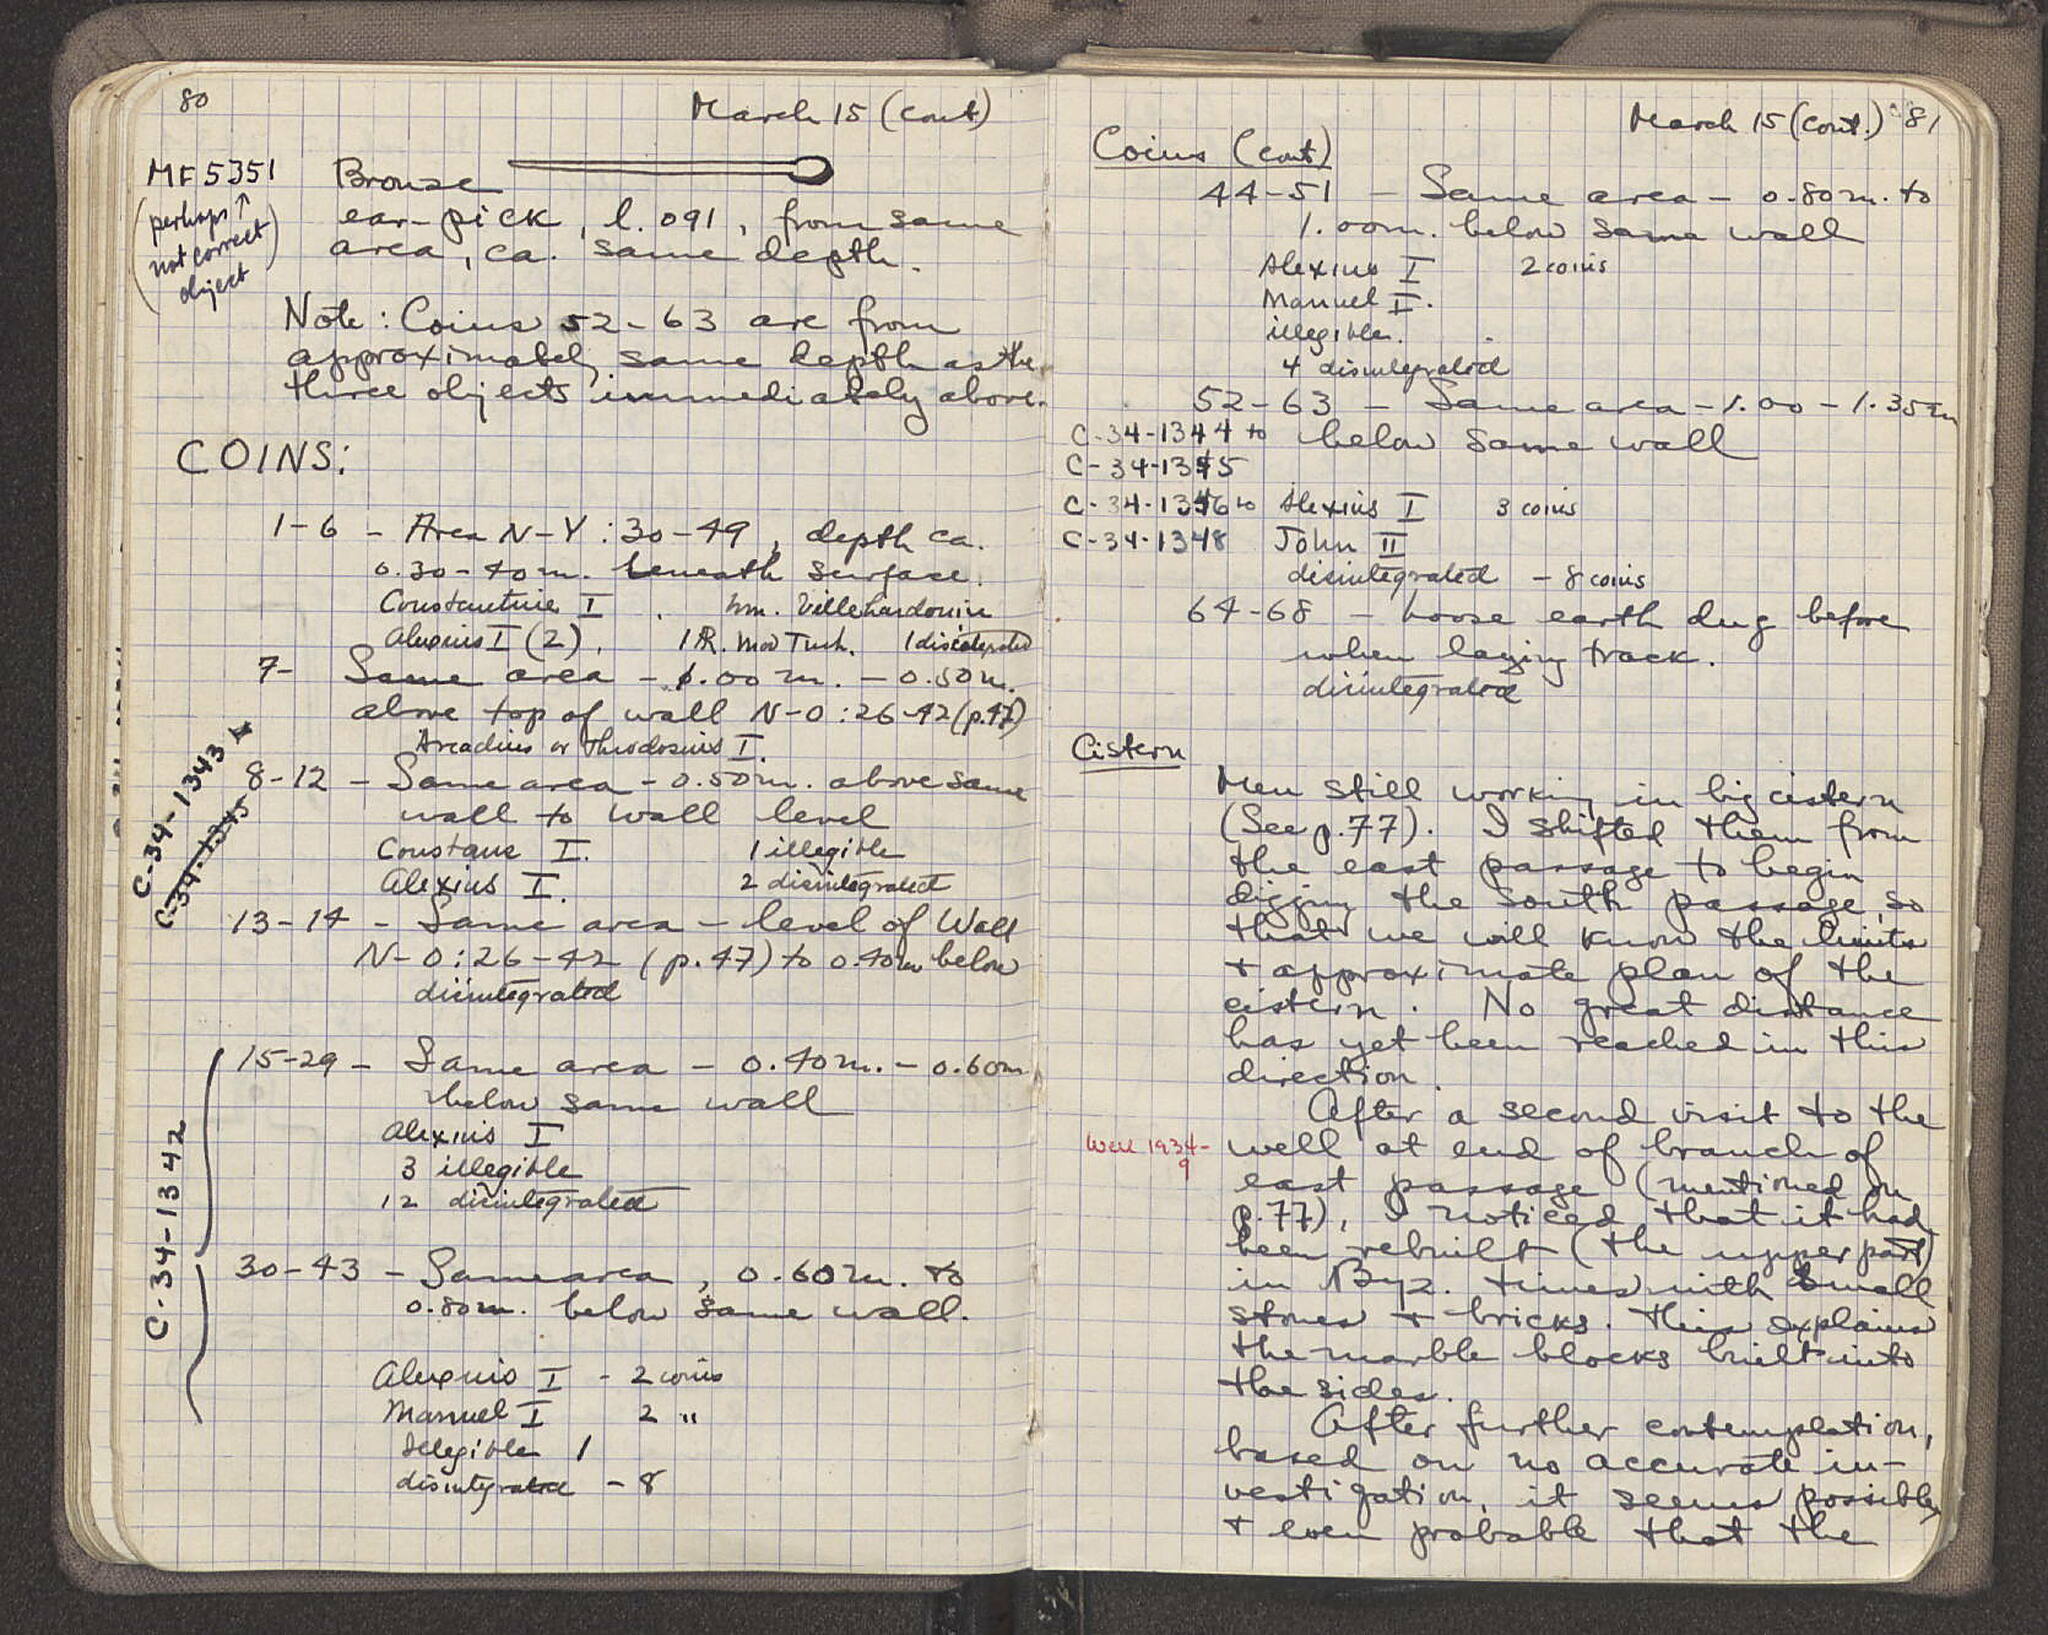 80
March 15 (cont)
MF 5351
(perhaps ↑
not correct
object)
Bronze
ear-pick, l. .091, from same
area, ca. same depth.
Note: Coins 52-63 are from
approximately same depth as the
three objects immediately above.
COINS:
1-6 - Area N-Y: 30-49, depth ca.
0.30-40m. beneath surface.
Constantine I. Wm. Villehardouin
Alexius I (2), 1 AR. Mod Turk. 1 disintegrated
7- Same area - 1.00 m. - 0.50m.
above top of wall N-O: 26-42 (p.47)
Arcadius or Theodosius I.
C-34-1343
C-34-1345
8-12 - Same area - 0.50m. above same
wall to wall level
Constans I. 1 illegible
Alexius I. 2 disintegrated
13-14 - Same area - level of Wall
N-O: 26-42 (p.47) to 0.40m below
disintegrated
C-34-1342
15-29 - Same area - 0.40m. - 0.60m
below same wall
Alexius I
3 illegible
12 disintegrated
30-43 - Same area, 0.60m. to
0.80m. below same wall.
Alexius I - 2 coins
Manuel I 2 "
Illegible 1
disintegrated - 8
March 15 (cont.) 81
Coins (cont)
44-51 - Same area - 0.80m. to
1.00m. below same wall
Alexius I 2 coins
Manuel I.
illegible.
4 disintegrated
52-63 - Same area - 1.00 - 1.35m
C-34-1344 to below same wall
C-34-1345
C-34-1346 to Alexius I 3 coins
C-34-1348 John II
disintegrated - 8 coins
64-68 - Loose earth dug before
when laying track.
disintegrated
Cistern
Men still working in big cistern
(See p.77). I shifted them from
the east passage to begin
digging the south passage, so
that we will know the limits
+ approximate plan of the
cistern. No great distance
has yet been reached in this
direction.
After a second visit to the
Well 1934-9
well at end of branch of
east passage (mentioned on
p.77), I noticed that it had
been rebuilt (the upper part)
in Byz. times with small
stones + bricks. This explains
the marble blocks built into
the sides.
After further contemplation,
based on no accurate in-
vestigation, it seems possible
+ even probable that the